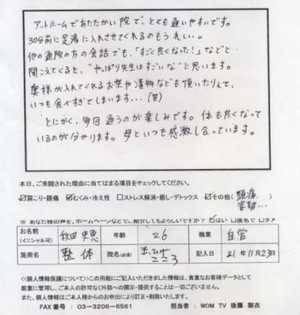 アットホームであたたかい院で、とても通いやすいです。
30分前に足湯に入れさせてくれるのもうれしい。
他の患院の方の会話でも、「すごく良くなった!」などと
聞こえてくると、"やっぱり先生はすごいな"と思います。
奥様が入れてくれるお茶や漬物なども頂いたりして、
いつも食べすぎてしまいます…(笑)
とにかく、毎回通うのが楽しみです。体も良くなって
いるのが分かります。母といつも感謝し合っています。
本日、ご来院された理由に当てはまる項目をチェックしてください。
☑肩こり・腰痛 ☑むくみ・冷え性 □ストレス解消・癒し・デトックス ☑その他(頭痛
お名前
(イニシャル可)
年齢 26 職業 自営
施術名 整体 院名(お店)
記入日 21年11月23日
◇個人情報保護について◇この用紙にご記入いただきました情報は、貴重なお客様データとして
厳重に管理し、ご本人の許可なく外部への開示・提供をすることは一切ございません。
また、個人情報はご本人様からのお申出により訂正・削除いたします。
FAX番号 : 03-3206-6561 担当者 : WOM TV 後藤